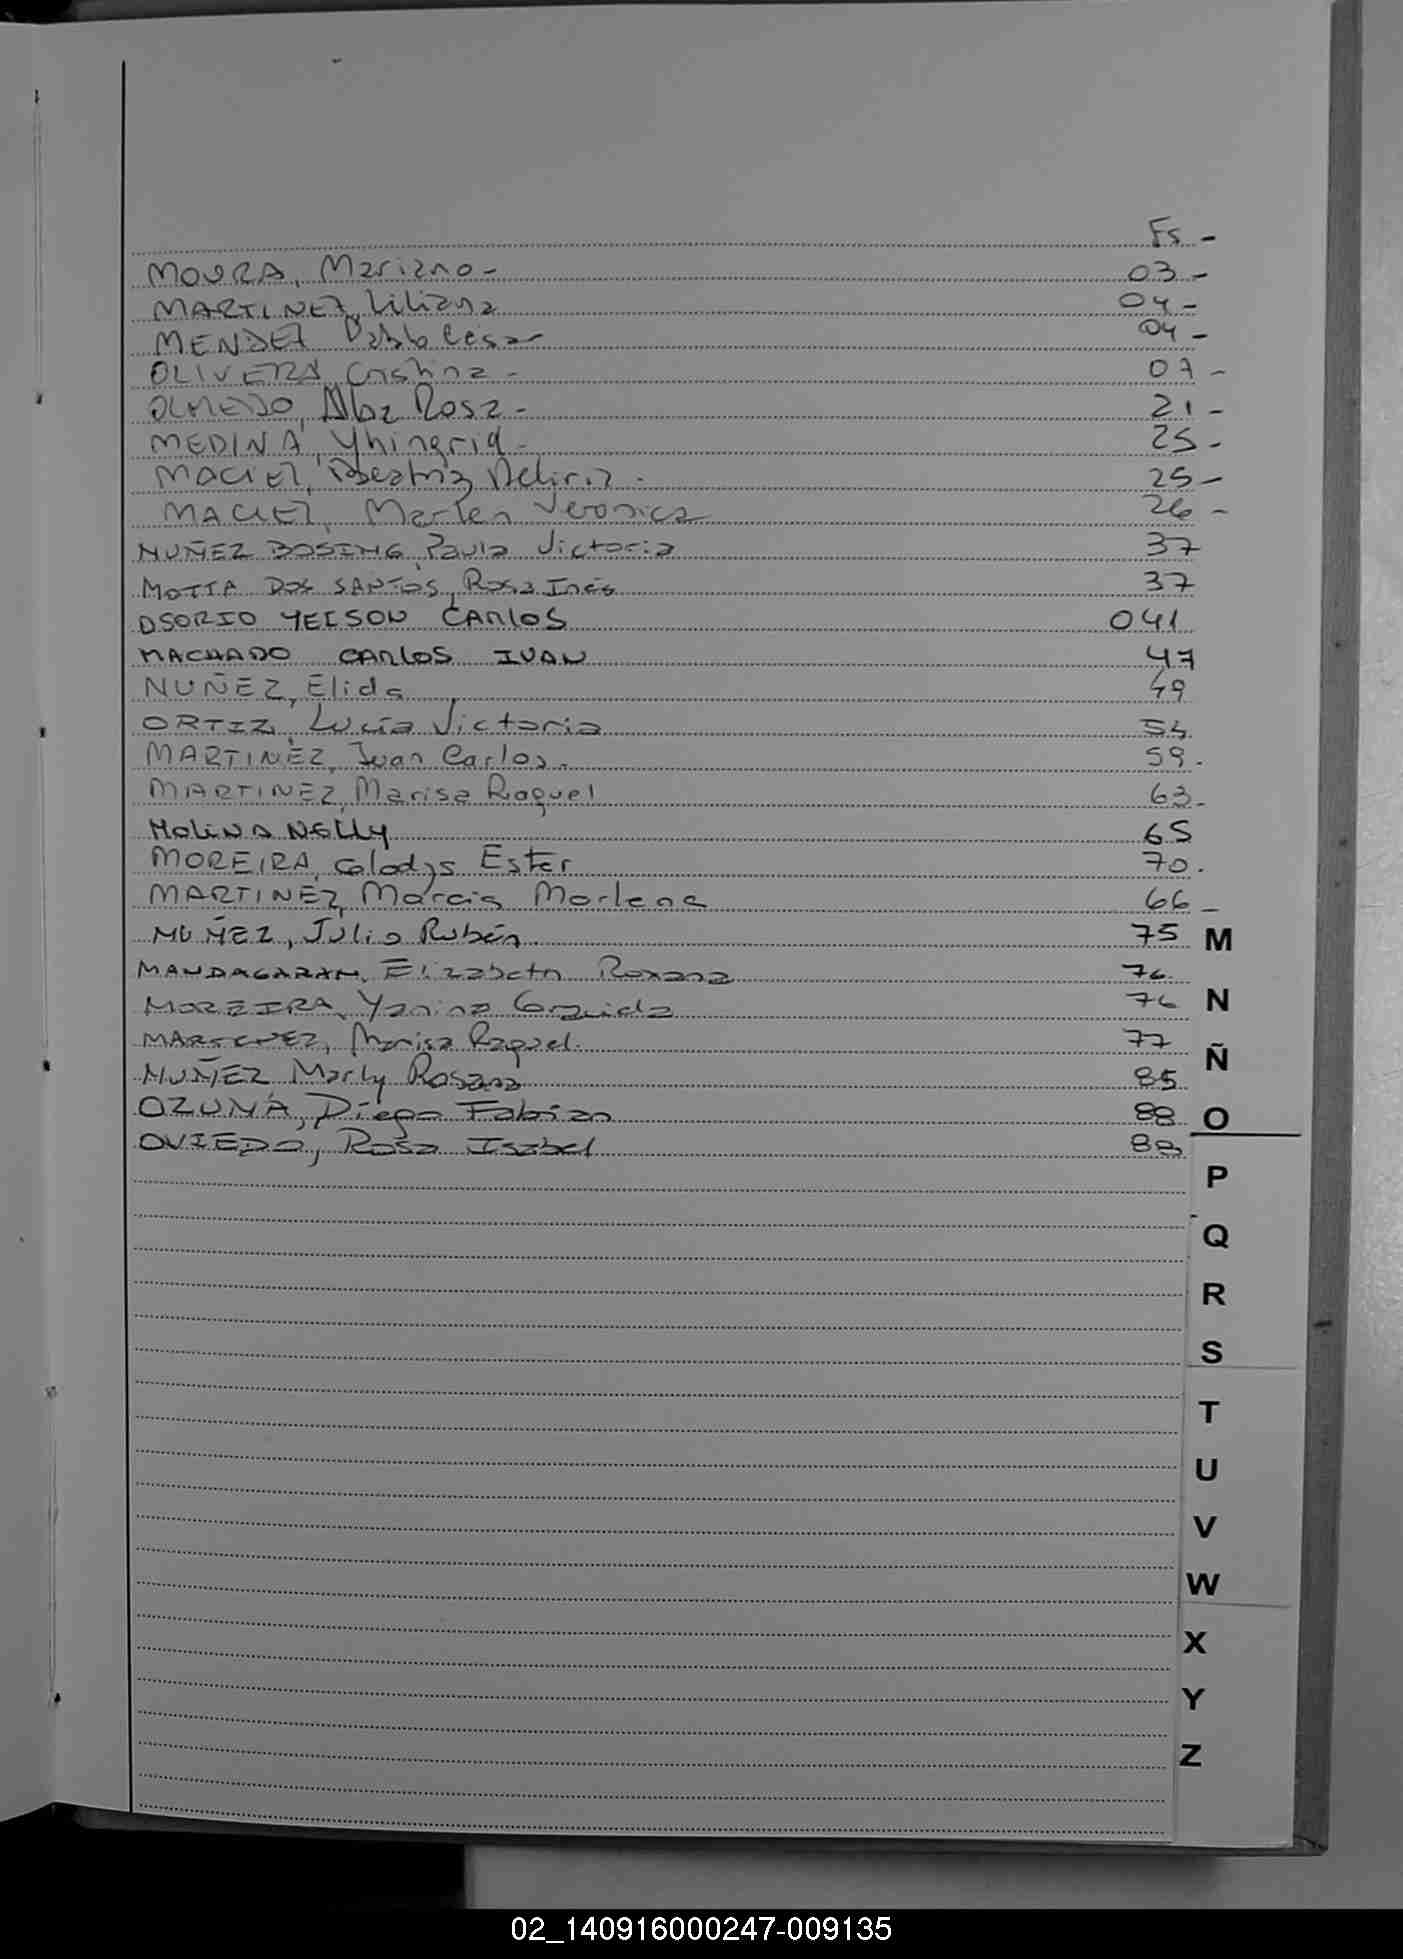 Fs -
MOURA, Mariano - 03 -
MARTINEZ, Liliana 04 -
MENDEZ Pablo Cesar 04 -
OLIVERA Cristina - 07 -
OLMEDO, Alba Rosa - 21 -
MEDINA, Yhingrid - 25 -
MACIEL, Beatriz 25 -
MACIEL, Marlen Veronica 26 -
NUÑEZ BOSING, Paula Victoria 37
MOTTA DOS SANTOS, Rosa Inés 37
OSORIO YEISON CARLOS 041
MACHADO CARLOS IVAN 47
NUÑEZ, Elida 49
ORTIZ, Lucía Victoria 54
MARTINEZ, Juan Carlos. 59.
MARTINEZ, Marisa Raquel 63.
MOLINA NELLY 65
MOREIRA, Gladys Ester 70.
MARTINEZ, Marcia Marlene 66 -
Julio Rubén 75
MANDAGARAN, Elizabeth Roxana 76
MOREIRA, Yanina 76
Marisa Raquel. 77
NUÑEZ Marly Rosana 85
OZUNA, Diego Fabian 88
OVIEDO, Rosa Isabel
M
N
Ñ
O
P
Q
R
S
T
U
V
W
X
Y
Z
02_140916000247-009135